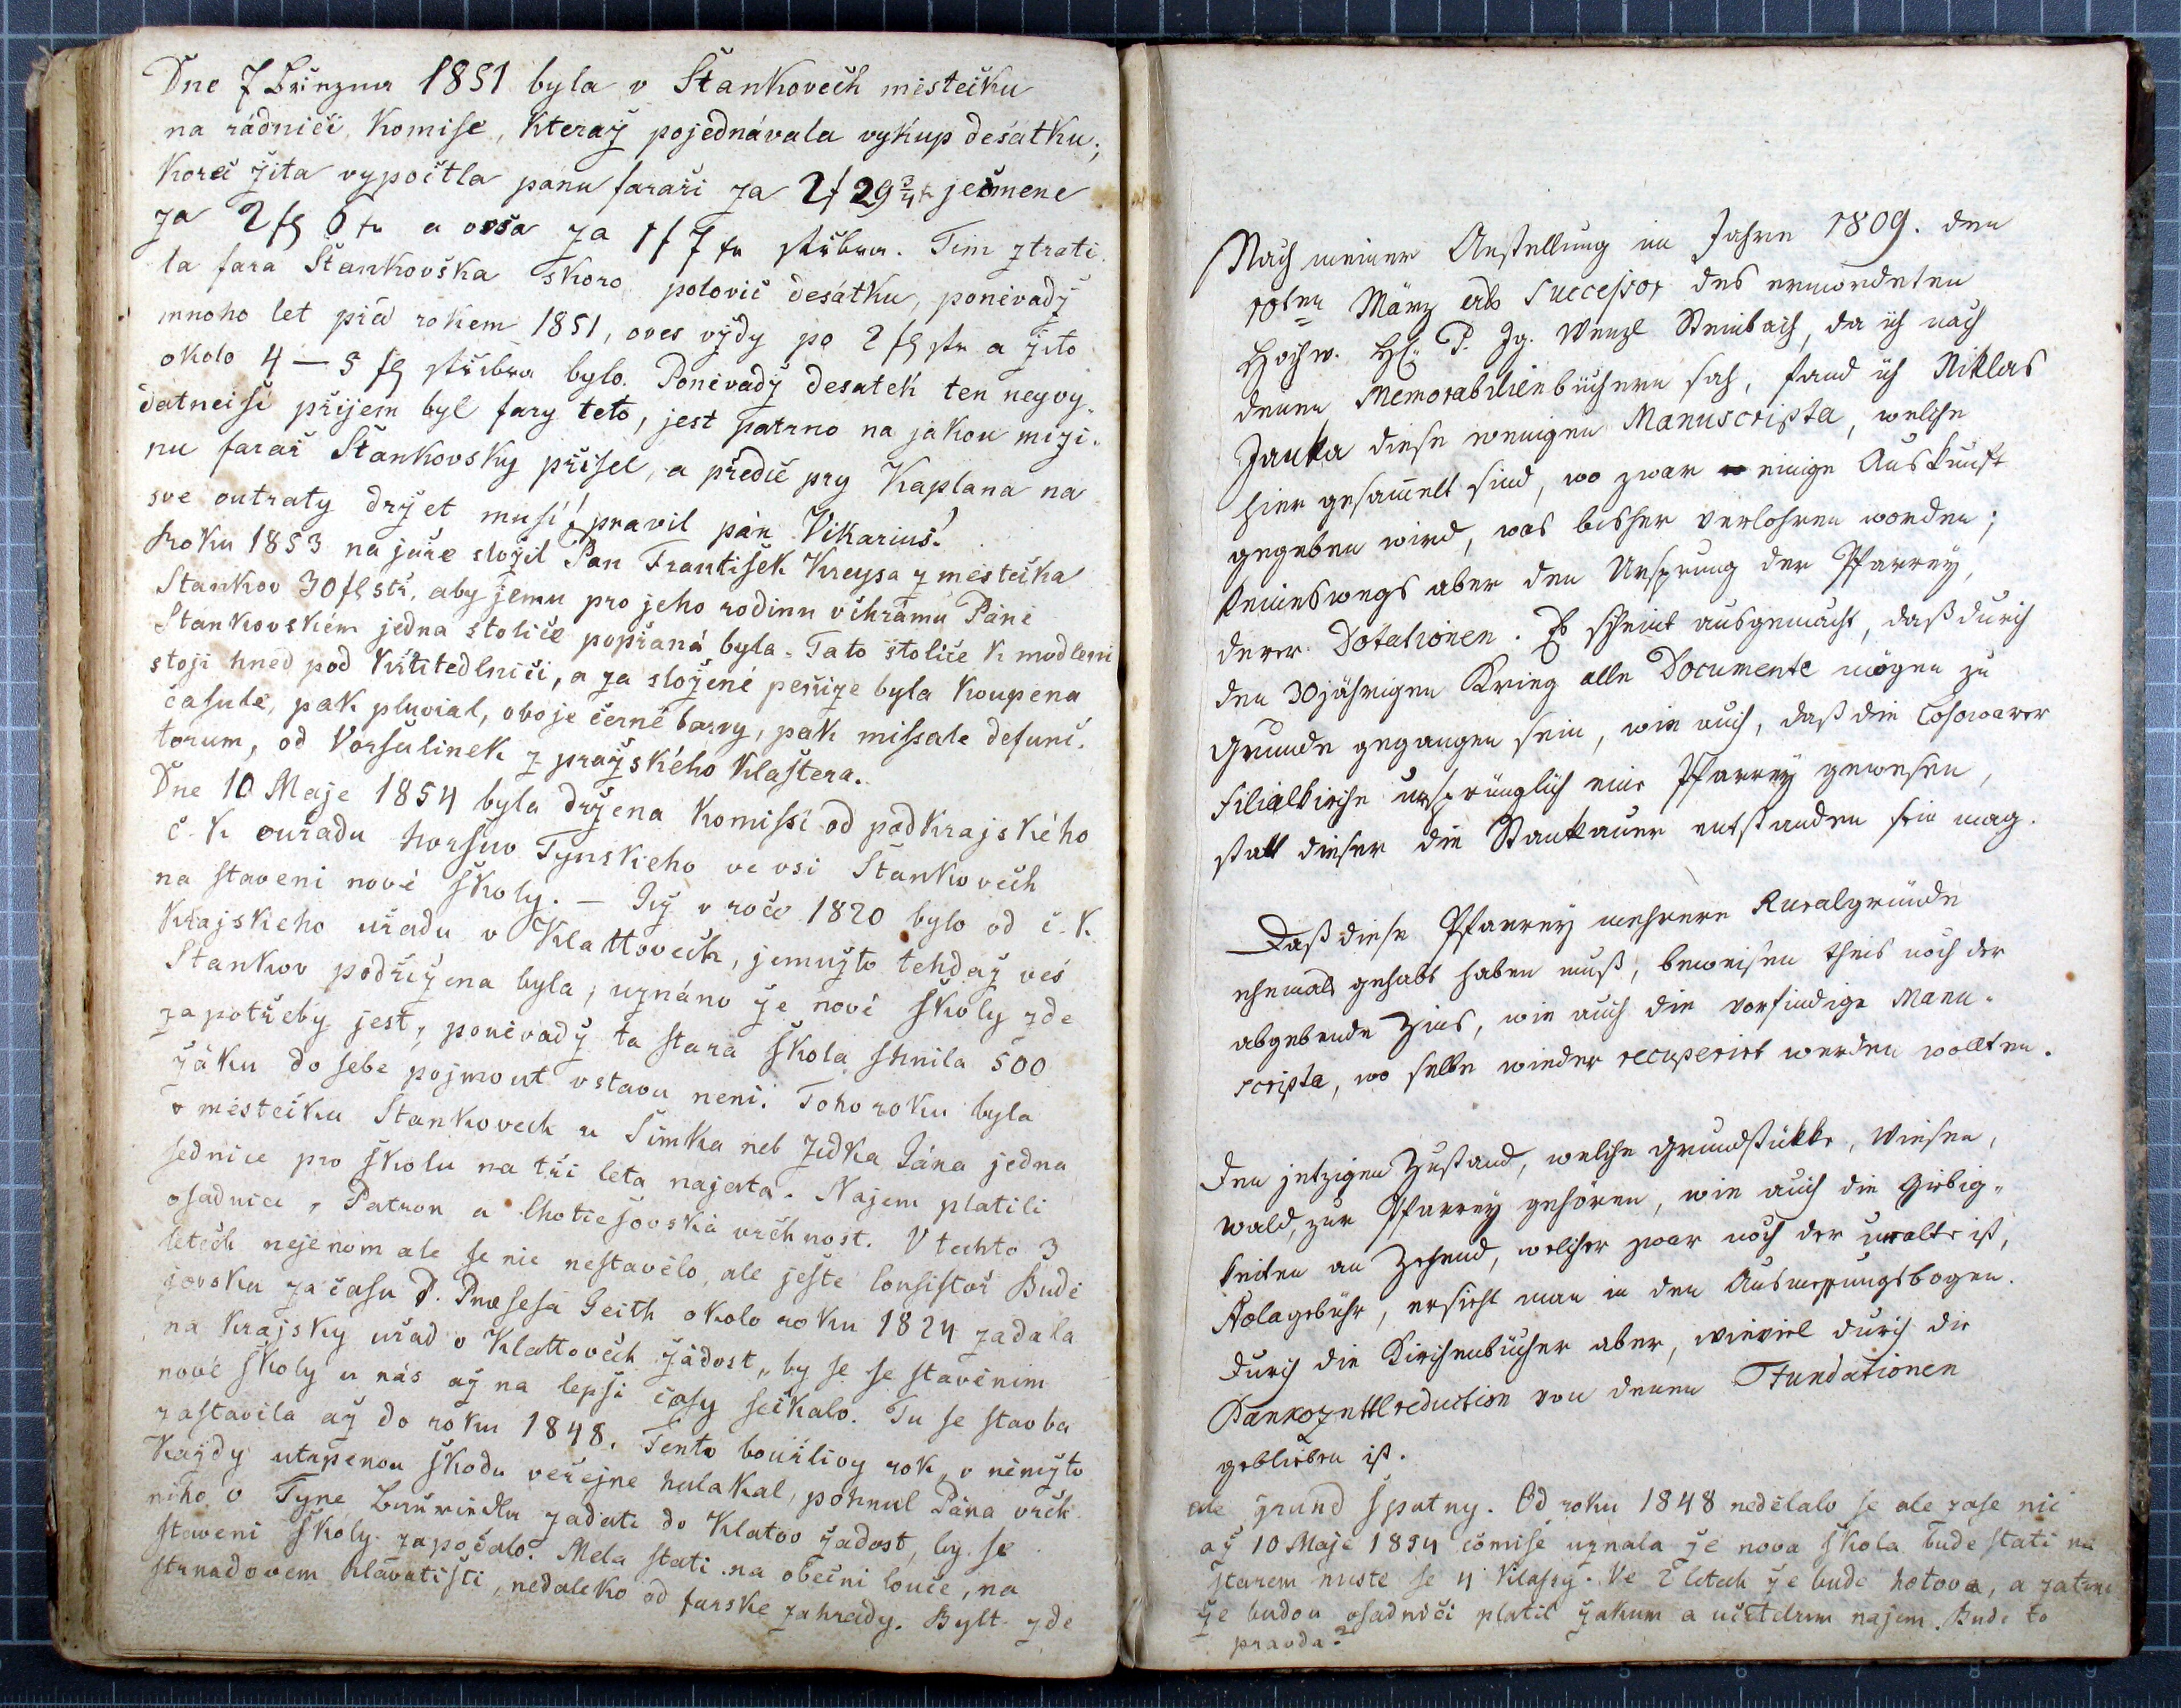 Dne 7 Března 1851 byla v Štankovech městečku
na rádniči, Komise, Kteraž pojednávala vykup desátku;
Koreč žita vypočtla panu faraři za 2f 29 3/4 kr ječmene
za 2 fl 6 kr a ovsa za 1f 7 kr střibra. Tim ztrati-
la fara Štankovska skoro polovic desátku, poněvadž
mnoho let před rokem 1851, oves vždy po 2 fl stř a žito
okolo 4 – 5 fl střibra bylo. Poněvadž desatek ten neyvy-
datneiši přijem byl fary teto, jest patrno na jakou mizi-
nu farař Štankovsky přišel, a předce pry Kaplana na
sve outraty držet musí! pravil pán Vikarius!
Roku 1853 na jaře složil Pan František Kreysa z městečka
Stankov 30 fl stř. aby jemu pro jeho rodinu v chrámu Páně
Stankovském jedna stolice popřaná byla. Tato stolice k modleni
stoji hned pod Křtitedlnici, a za složené penize byla koupena
časule, pak pluvial, oboje černé barvy, pak missale defunc-
torum, od Voršulinek z pražského Klaštera.
Dne 10 Maje 1854 byla držena Komissí od podkrajského
c. k ouřadu horšuv Tynskieho ve vsi Štankovech
na staveni nové školy. – Již v roce 1820 bylo od c. k.
Krajskieho uřadu v Klattovech, jemužto tehdaž ves
Stankov podřižena byla, uznáno že nové školy zde
zapotřeby jest, poněvadž ta stara škola shnila 500
žáku do sebe pojmout vstavu neni. Toho roku byla
v městečku Stankovech u Šimka neb Židka Jána jedna
sednice pro školu na tři leta najata. Najem platili
osadnici, Patron a Chotiešovská vrchnost. V techto 3
letech nejenom ale se nic nestavělo, ale ještě Consistoř Budě
jovska za času P. Præsesa Geith okolo roku 1824 zadala
na Krajsky uřad v Klattovech žádost, by se se stavěnim
nové školy u nás až na lepši časy sečkalo. Tu se stavba
zastavila až do roku 1848. Tento bouřlivy rok, v němžto
Každy utrpenou škodu veřejne hulakal, pohnul Pána vrch
niho v Tyne zadati do Klatov žadost, by se
staveni školy započalo. Mela stati na obečni louce, na
strnadovem hlavatišti, nedaleko od farske zahrady. Bylt zde
Nach meiner Anstellung im Jahre 1809. den
10ten März als Successor des ermordeten
Hochw. H. P. Ig. Wenzl Steinbach, da ich nach
denen Memorabilienbüchern sah, fand ich Niklas
Janka diese wenigen Manuscripta, welche
hier gesammelt sind, wo zwar einige Auskunft
gegeben wird, was bisher verlohren worden;
keineswegs aber den Ursprung der Pfarrey,
derer Dotationen. Es scheint ausgemacht, daß durch
den 30jährigen Krieg alle Documente mögen zu
Grunde gegangen sein, wie auch, daß die Cosowarer
Filialkirche ursprünglich eine Pfarrey gewesen,
statt dieser die Stankauer entstanden sein mag.
Daß diese Pfarrey mehrere Ruralgründe
ehemals gehabt haben muß, beweisen theils noch der
abgebende Zins, wie auch die vorfindige Manu-
scripta, wo selbe wieder recuperirt werden wollten.
Den jetzigen Zustand, welche Grundstükke, Wiesen,
Wald, zur Pfarrey gehören, wie auch die Giebig-
keiten an Zehend, welcher zwar noch der uralte ist,
Stolagebühr, ersieht man in den Ausmessungsbogen.
Durch die Kirchenbücher aber, wieviel durch die
Bankozettlreduction von denen Fundationen
geblieben ist.
ale grund špatny. Od roku 1848 nedělalo se ale zase nic
až 10 Maje 1854 comisé uznala že nova škola bude stati na
starem miste se 4 Klassy. Ve 2 letech že bude hotova, a zatim
že budou osadnici platil žakum a učitelum najem. Bude to
pravda?